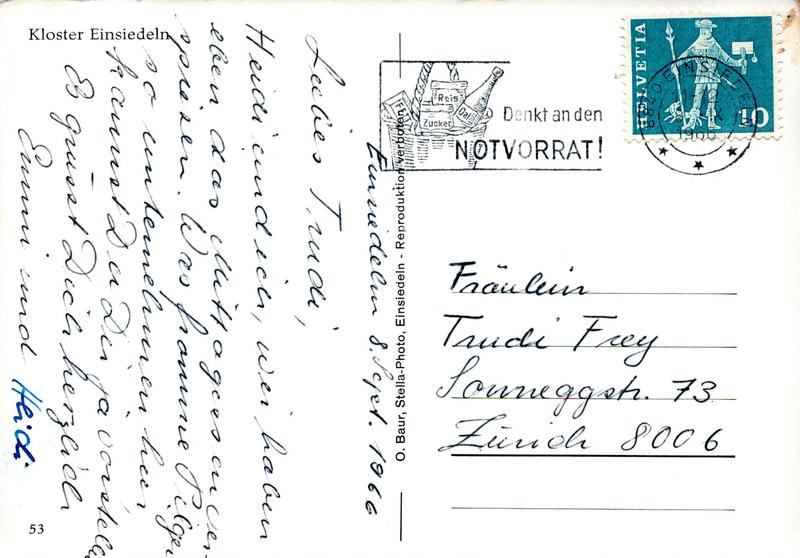 Kloster Einsiedeln
Einsiedeln 8. Sept. 1966
Liebes Trudi,
Heidi und ich, wir haben
eben das Mittagessen ver-
speisen. Was fromme Pilger
so unternehmen hier
kannst Du Dir ja vorstellen
Es grüsst Dich herzlich
Emmi und Heidi
53
O. Baur, Stella-Photo, Einsiedeln - Reproduktion verboten
Reis
Zucker
Denkt an den
NOTVORRAT!
HELVETIA
10
8840 EINSIEDELN
Fräulein
Trudi Frey
Sonneggstr. 73
Zürich 8006